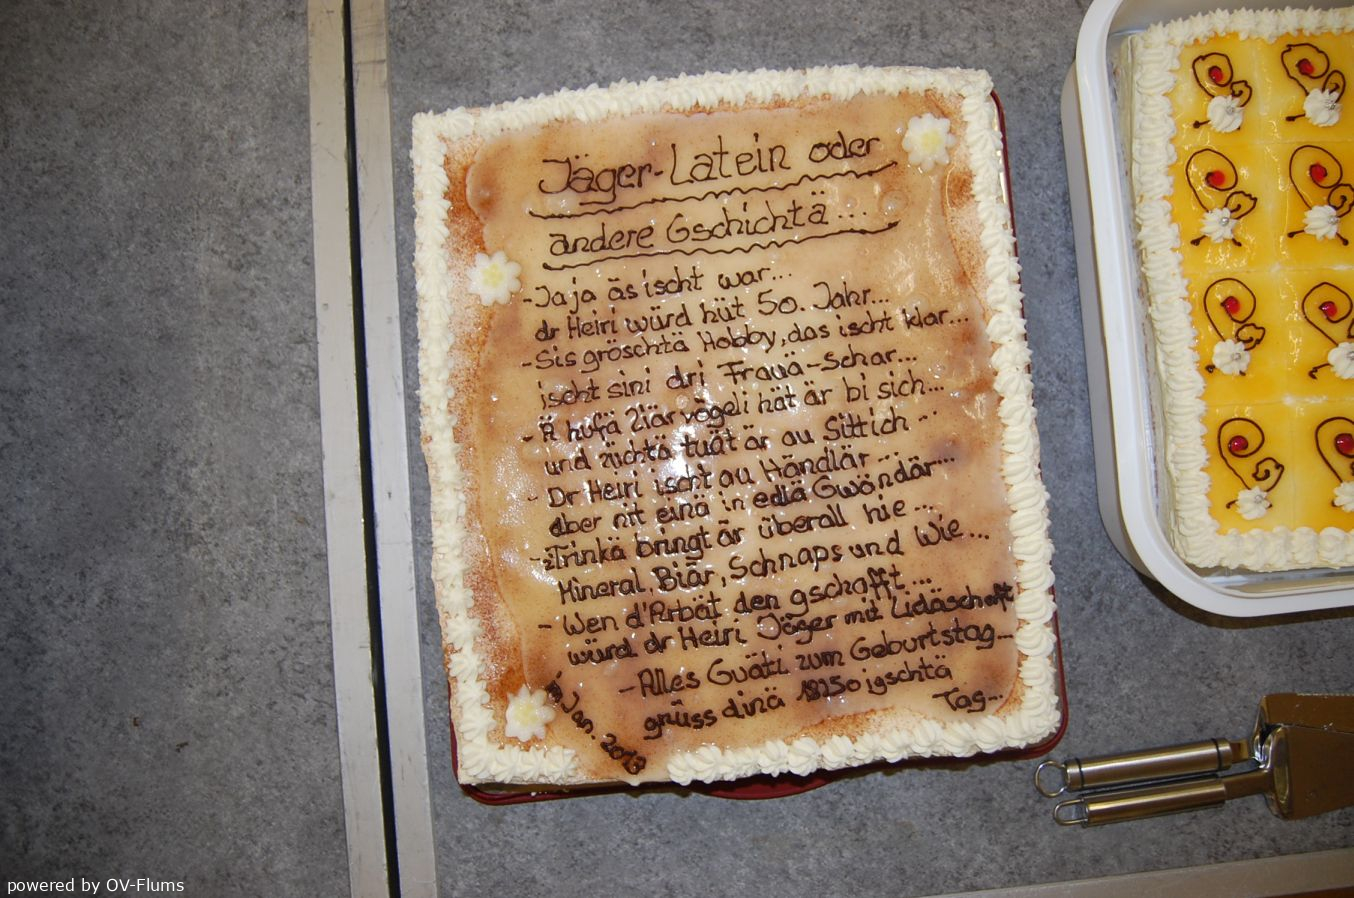 Jäger-Latein oder
andere Gschichtä...
-Ja ja äs ischt war...
dr Heiri würd hüt 50. Jahr...
-Sis gröschtä Hobby, das ischt klar...
ischt sini dri Frauä-Schar...
- Ä hufä Ziärvögeli hät är bi sich...
und züchtä tuät är au Sittich...
- Dr Heiri ischt au Händlär...
aber nit einä in edlä Gwöndär...
- zTrinkä bringt är überall hie...
Mineral, Biär, Schnaps und Wie...
- Wen d'Arbät den gschafft...
würd dr Heiri Jäger mit Lidäschaft
- Alles Guäti zum Geburtstag...
grüss dinä 18250igschtä
Tag...
Jan. 2013
powered by OV-Flums